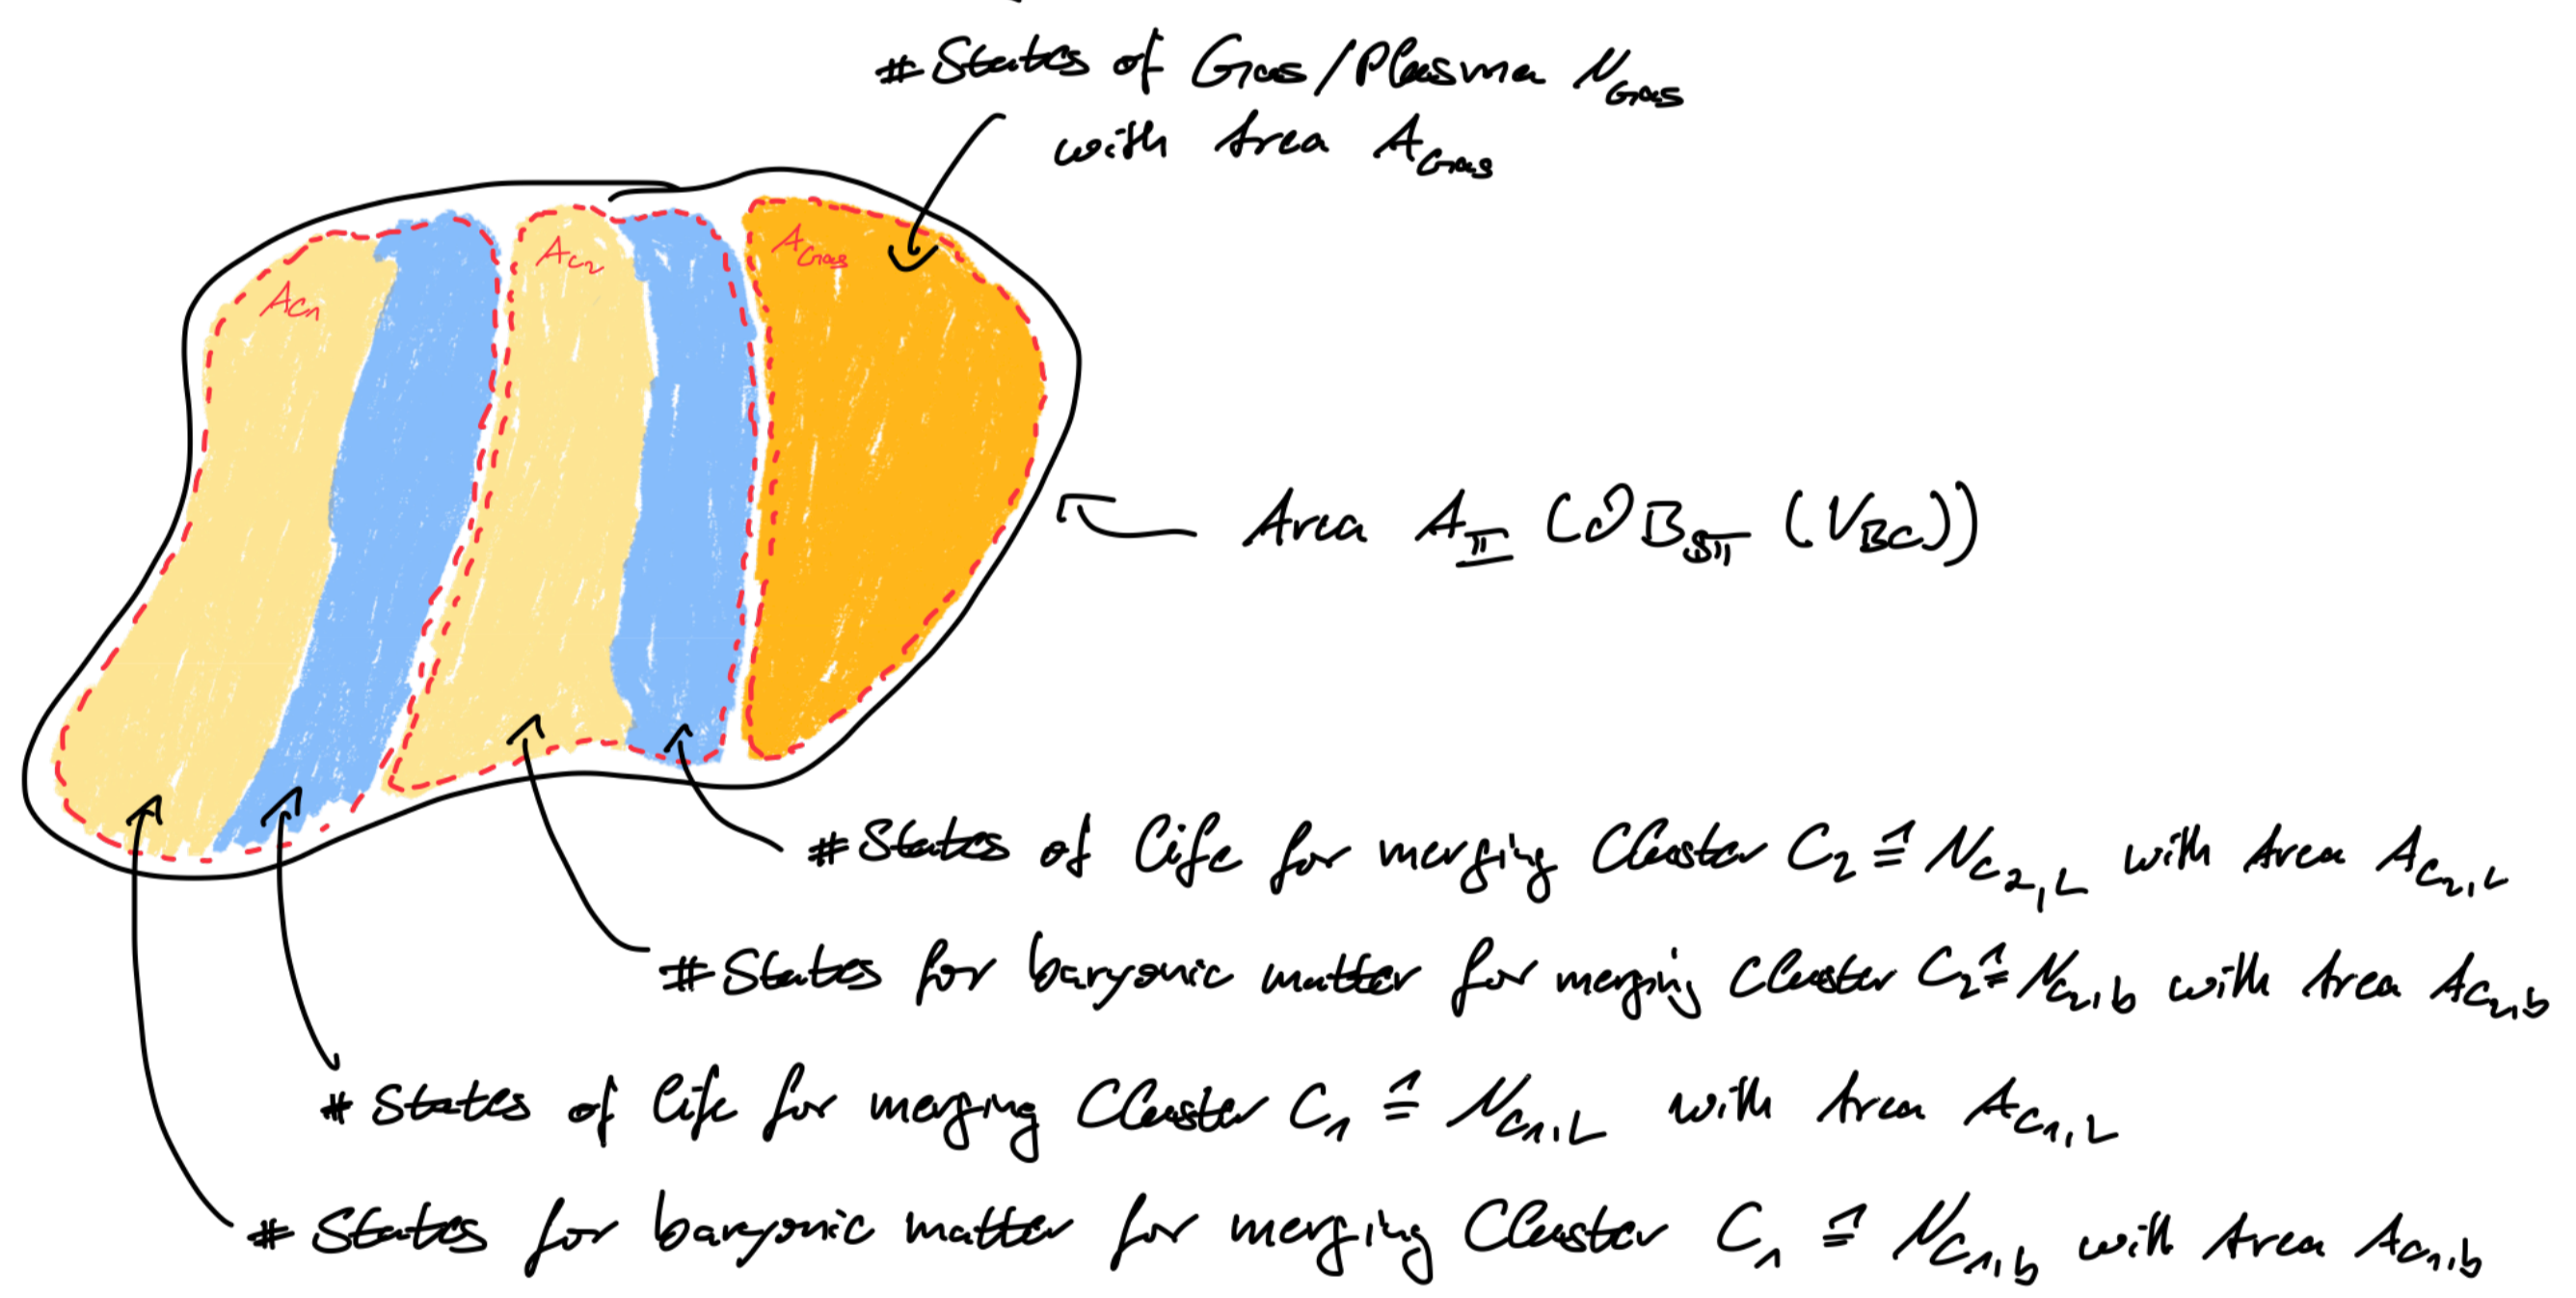 # States of Gas/Plasma N_Gas
with Area A_Gas
A_C1
A_C2
A_Gas
Area A_II (∂B_SII (V_BC))
# States of life for merging Cluster C_2 ≙ N_C2,L with Area A_C2,L
# States for baryonic matter for merging Cluster C_2 ≙ N_C2,b with Area A_C2,b
# States of life for merging Cluster C_1 ≙ N_C1,L with Area A_C1,L
# States for baryonic matter for merging Cluster C_1 ≙ N_C1,b with Area A_C1,b